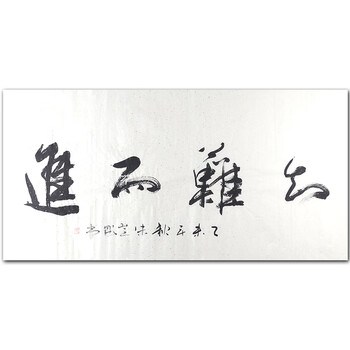 知難而進
乙未年秋